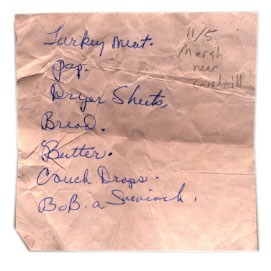 Turkey meat.
pop.
Dryer Sheets,
Bread.
Butter.
Couch Drops.
B.B. a
11/5
Marsh
near